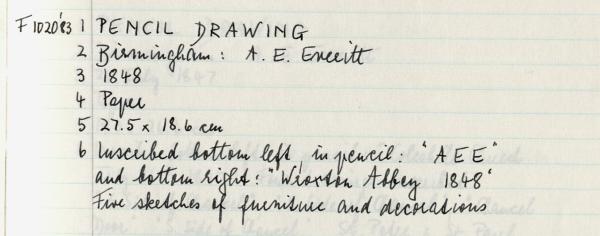 F1020'83 1 PENCIL DRAWING
2 Birmingham: A. E. Everitt
3 1848
4 Paper
5 27.5 x 18.6 cm
6 Inscribed bottom left in pencil: "A E E"
and bottom right: "Wroxton Abbey 1848"
Five sketches of furniture and decorations